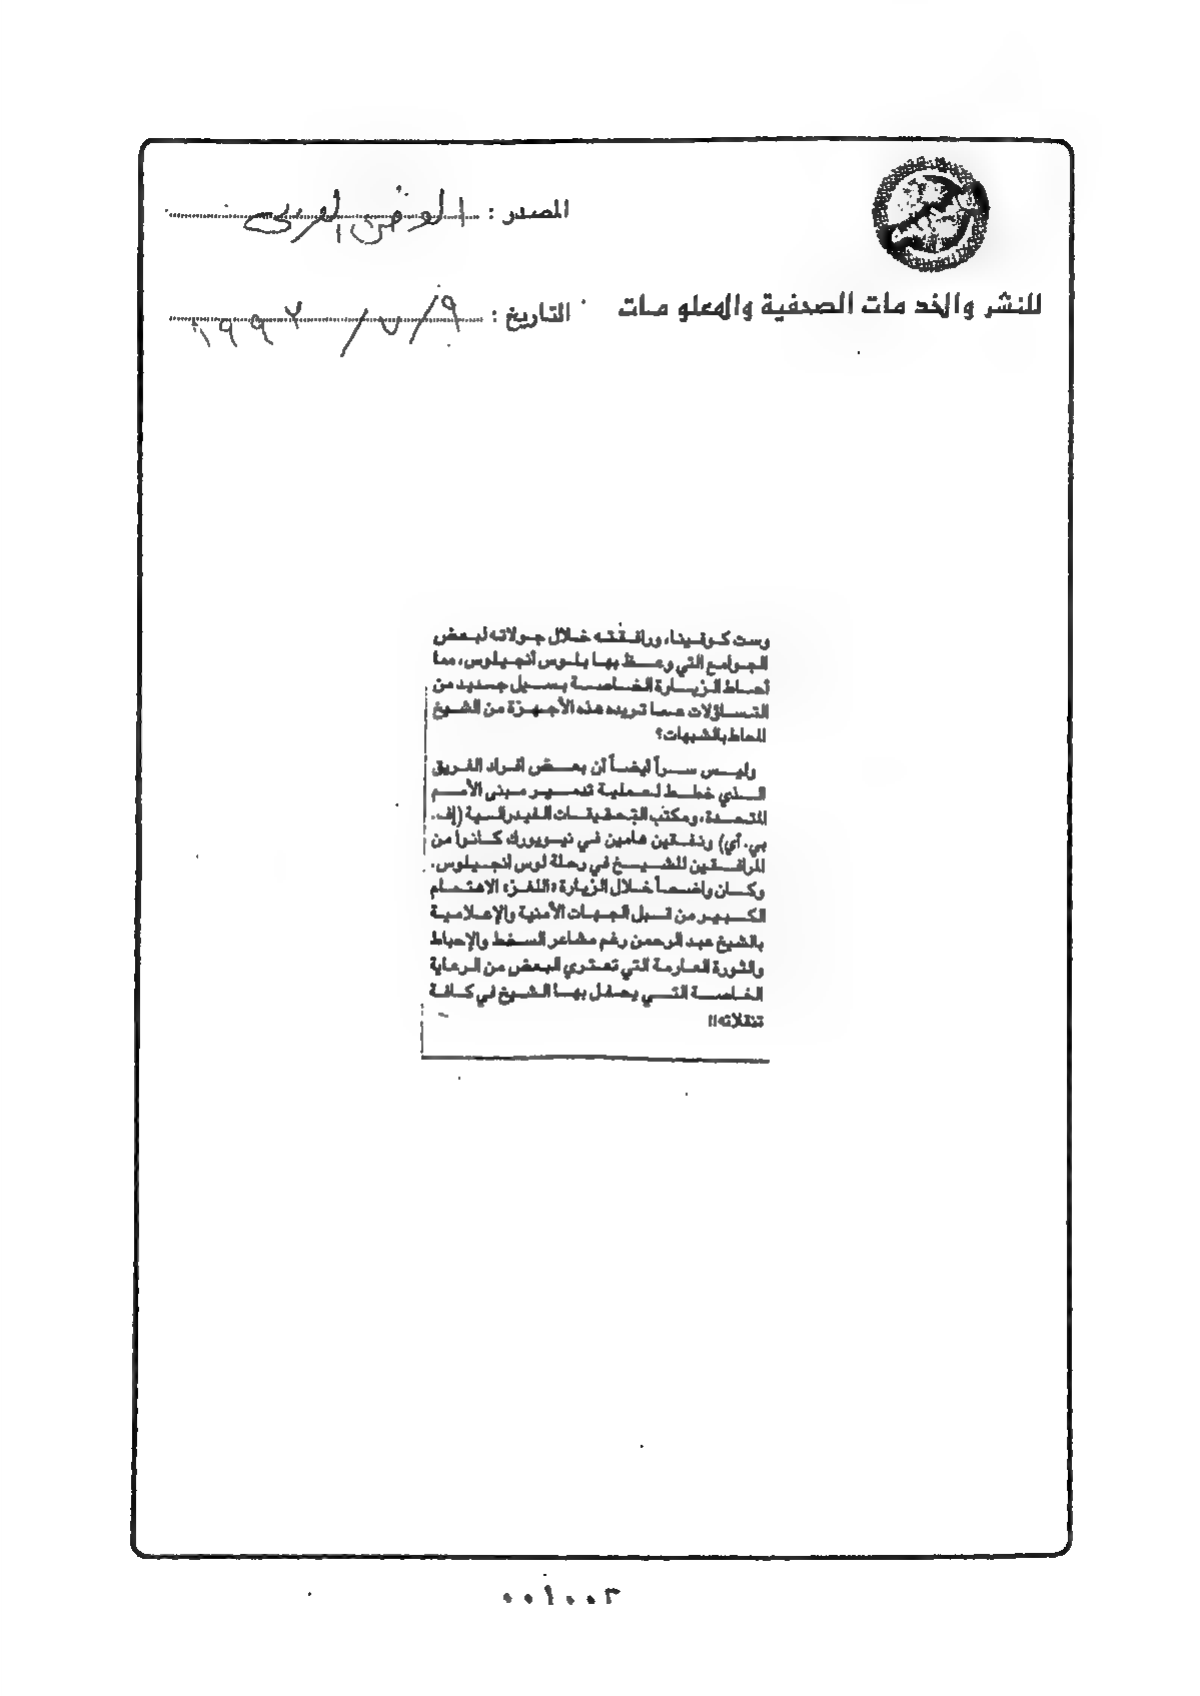 المصدر : الوطن العربي
للنشر والخدمات الصحفية والمعلومات
التاريخ : ٩/٧/١٩٩٣
وست كوفينا، ورافقته خلال جولاته لبعض
الجوامع التي وعظ بها بلوس أنجيلوس، مما
أحاط الزيارة الخاصة بسيل جديد من
التساؤلات عما تريده هذه الأجهزة من الشيخ
المحاط بالشبهات؟
وليس سراً أيضاً أن بعض أفراد الفريق
الذي خطط لعملية تدمير مبنى الأمم
المتحدة، ومكتب التحقيقات الفيدرالية (إف.
بي. أي) ونفقين هامين في نيويورك كانوا من
المرافقين للشيخ في رحلة لوس أنجيلوس.
وكان واضحاً خلال الزيارة «اللغز» الاهتمام
الكبير من قبل الجهات الأمنية والإعلامية
بالشيخ عبد الرحمن رغم مشاعر السخط والإحباط
والثورة العارمة التي تعتري البعض من الرعاية
الخاصة التي يحفل بها الشيخ في كافة
تنقلاته!!
٠٠١٠٠٣